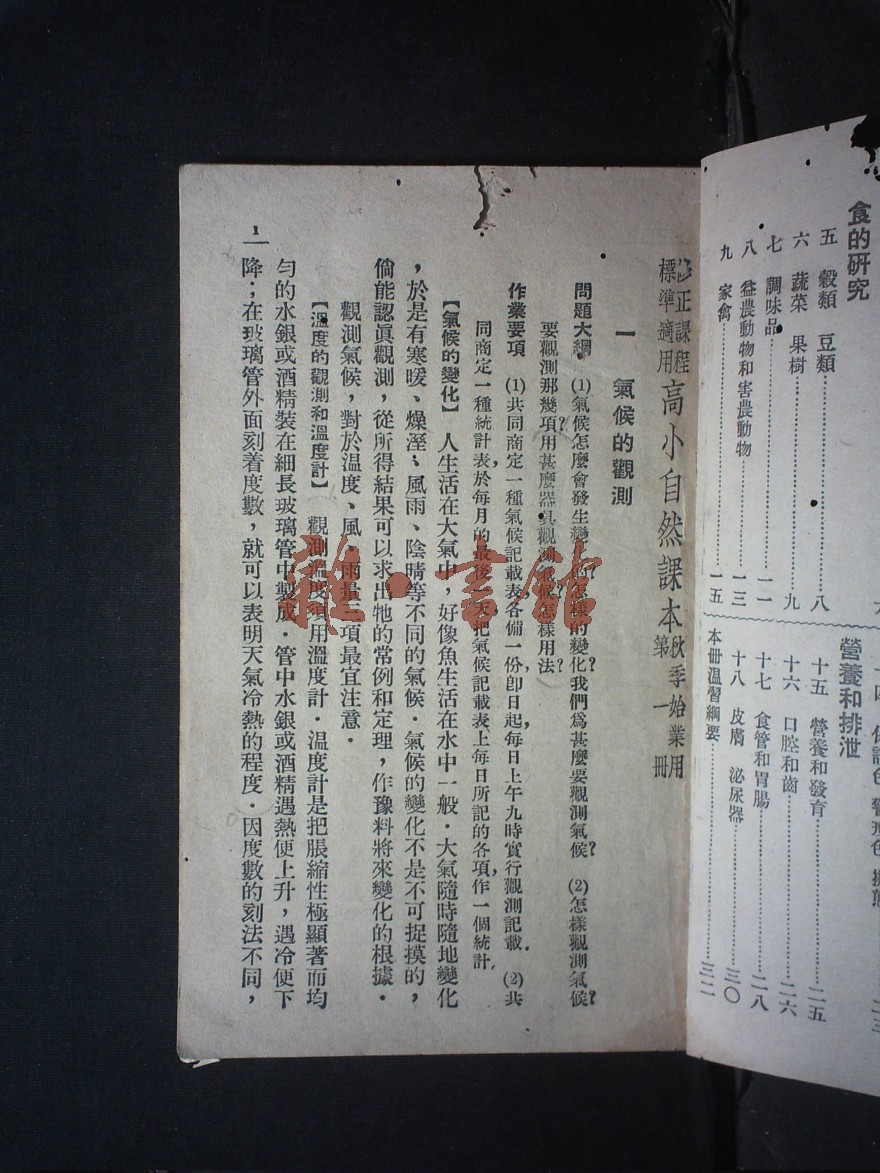 食的研究
五　穀類　豆類⋯⋯八
六　蔬菜　果樹⋯⋯九
七　調味品⋯⋯一一
八　益農動物和害農動物⋯⋯一三
九　家禽⋯⋯一五
營養和排泄
十五　營養和發育⋯⋯二五
十六　口腔和齒⋯⋯二六
十七　食管和胃腸⋯⋯二八
十八　皮膚　泌尿器⋯⋯三〇
本冊温習綱要⋯⋯三二
修正課程標準適用 高小自然課本 秋季始業用 第一冊
一　氣候的觀測
問題大綱　(1)氣候怎麼會發生變化?怎樣的變化?我們爲甚麼要觀測氣候?　(2)怎樣觀測氣候?
要觀測那幾項?用甚麼器具觀測氣候?怎樣用法?
作業要項　(1)共同商定一種氣候記載表,各備一份,卽日起,每日上午九時實行觀測記載.　(2)共
同商定一種統計表,於每月的最後一天,把氣候記載表上每日所記的各項,作一個統計.
【氣候的變化】　人生活在大氣中，好像魚生活在水中一般．大氣隨時隨地變化
，於是有寒暖、燥溼、風雨、陰晴等不同的氣候．氣候的變化不是不可捉摸的，
倘能認眞觀測，從所得結果可以求出牠的常例和定理，作豫料將來變化的根據．
觀測氣候，對於温度、風、雨量三項最宜注意．
【溫度的觀測和溫度計】　觀測溫度須用溫度計．温度計是把脹縮性極顯著而均
勻的水銀或酒精裝在細長玻璃管中製成．管中水銀或酒精遇熱便上升，遇冷便下
降；在玻璃管外面刻着度數，就可以表明天氣冷熱的程度．因度數的刻法不同，
1
雜·書館